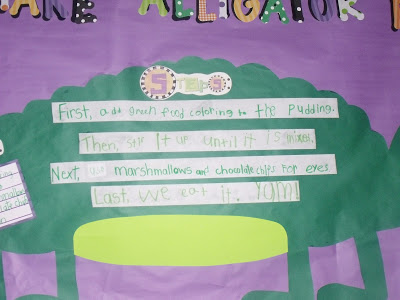 ALLIGATOR
Steps
First, add green food coloring to the pudding.
Then, stir it up until it is mixed.
Next, use marshmallows and chocolate chips for eyes
Last, we eat it. YOM!